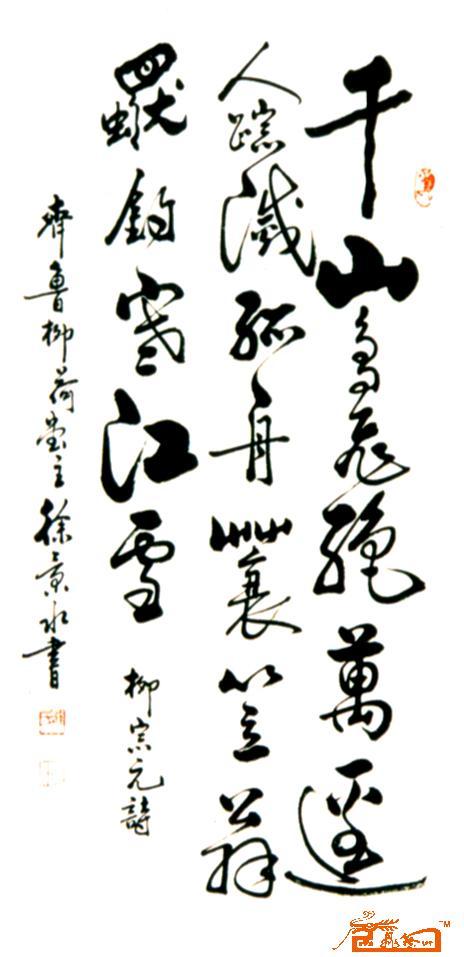 千山鳥飛絕萬逕
人踪滅孤舟蓑笠翁
獨釣寒江雪
柳宗元詩
齊魯柳荷堂主徐景水書